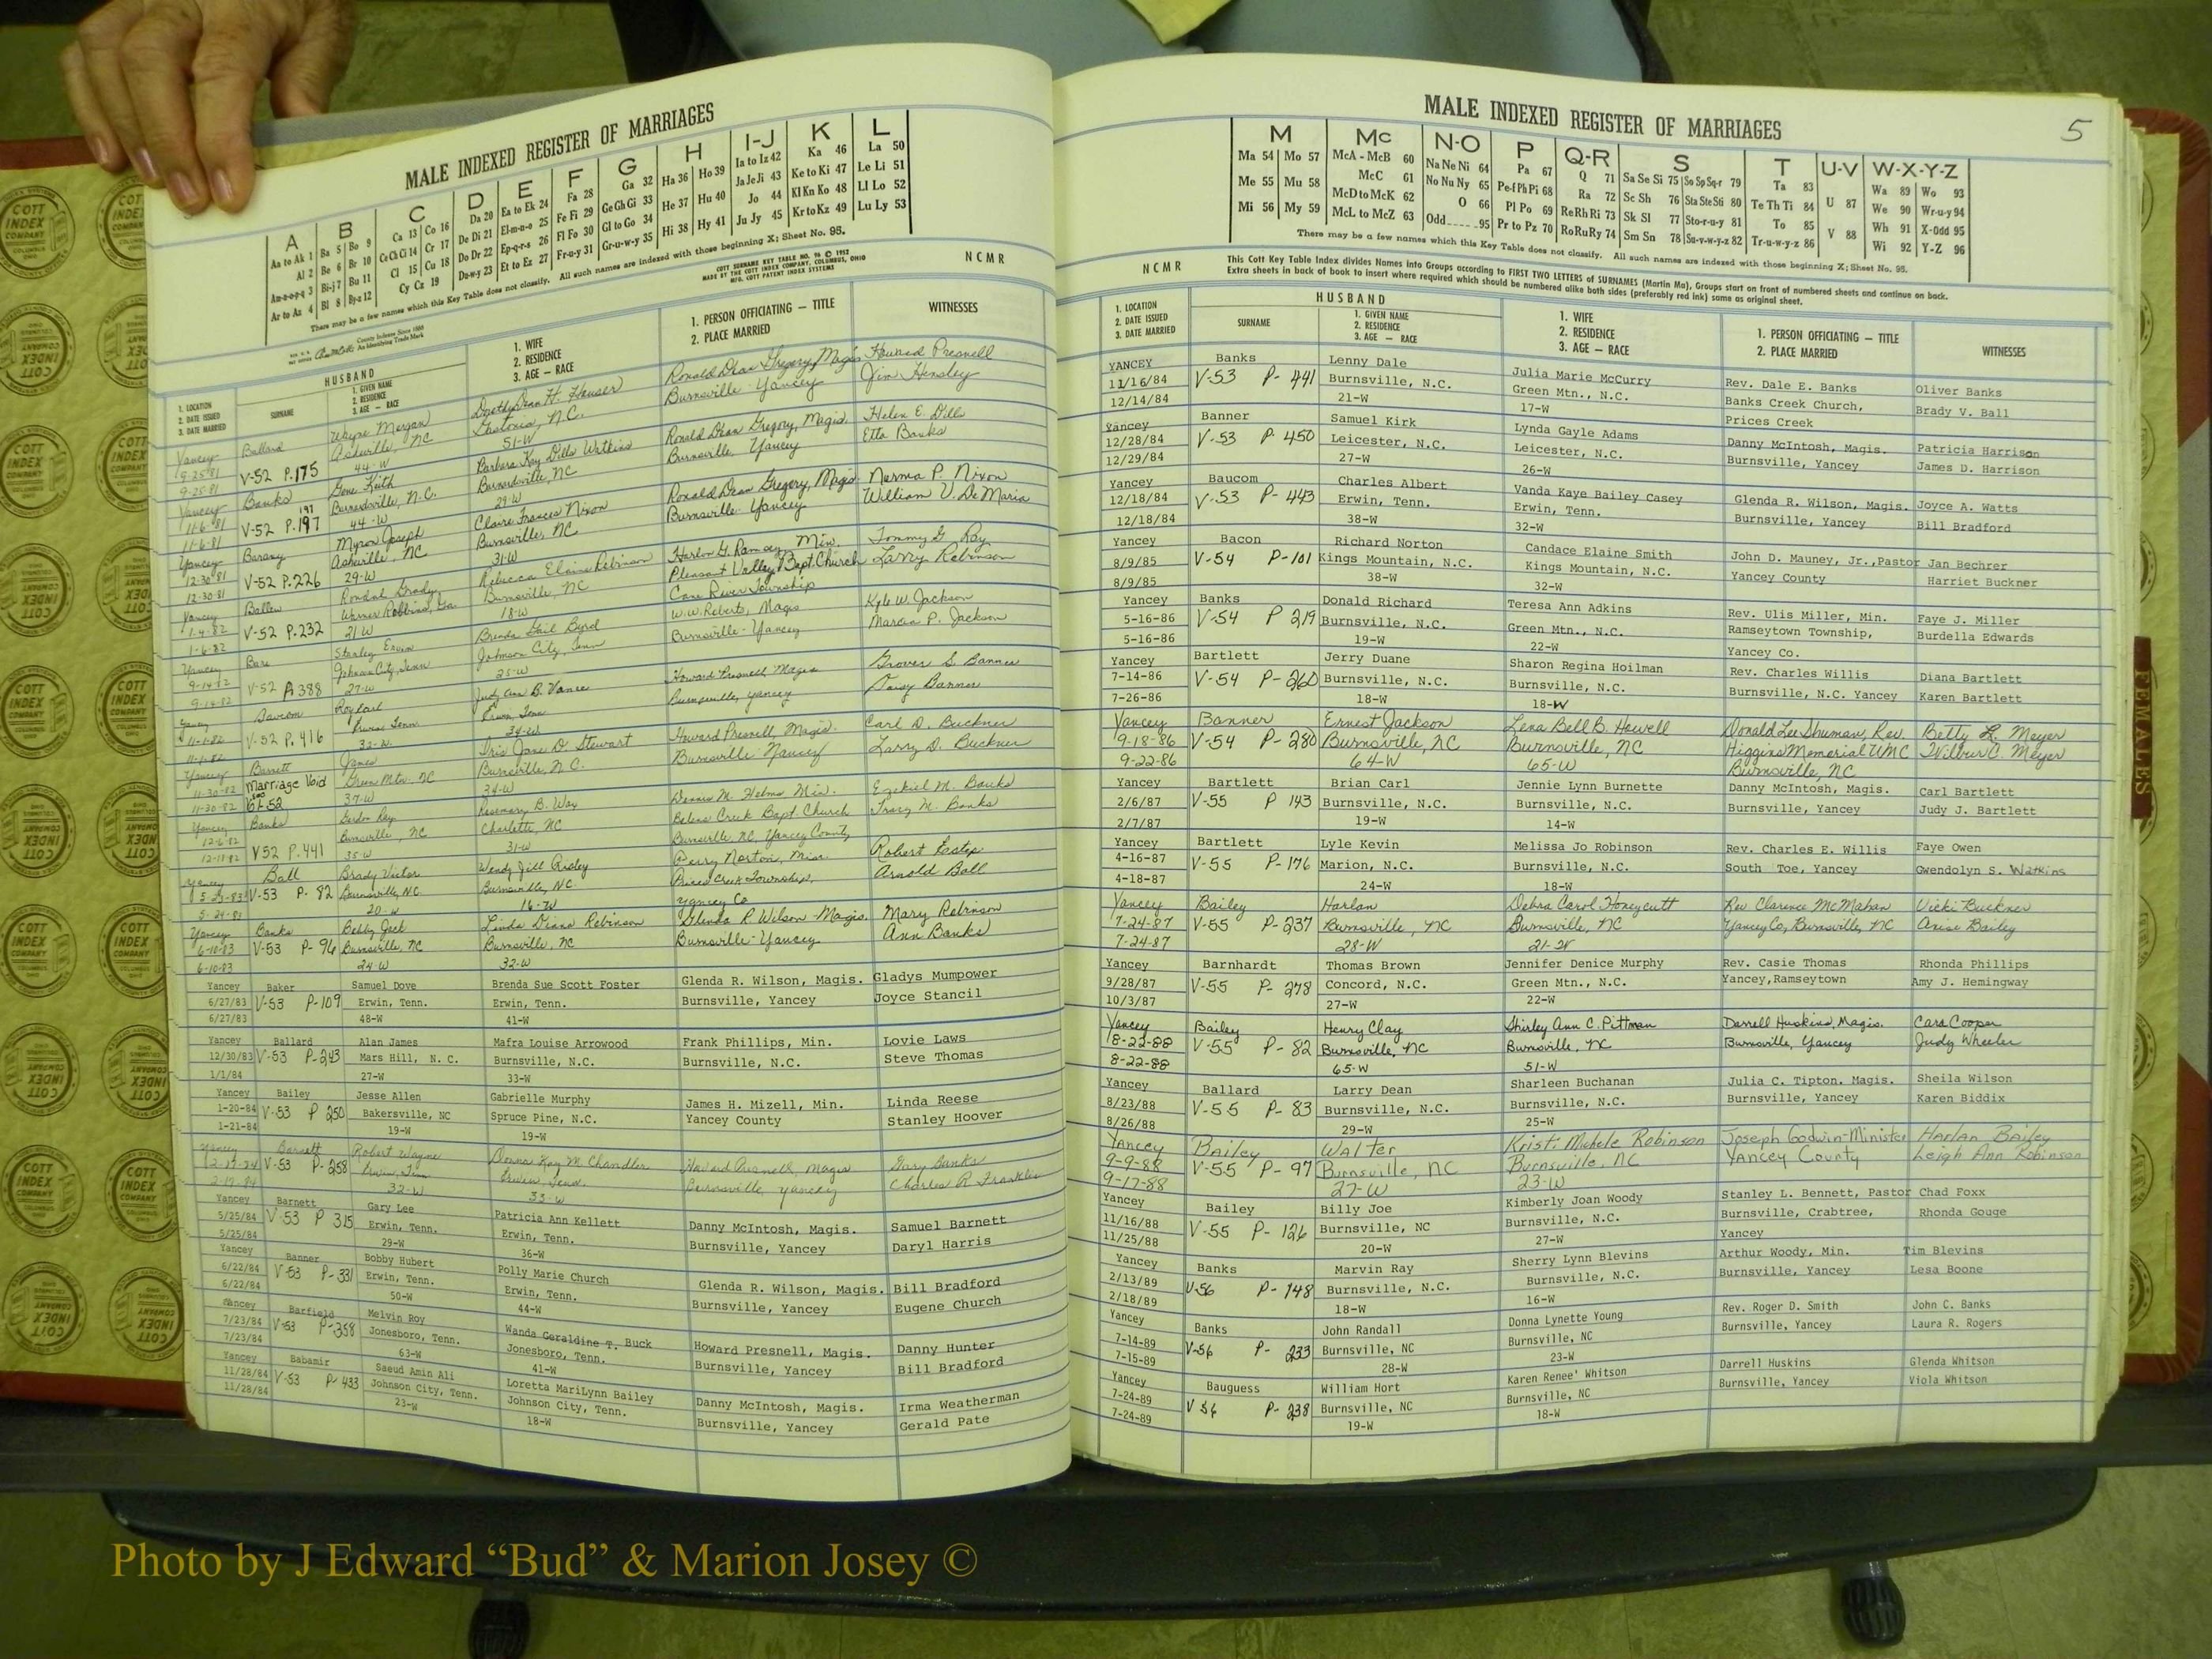 MALE INDEXED REGISTER OF MARRIAGES
A B C D E F G H I-J K L
Aa to Ak 1 Ba 5 Bo 9 Ca 13 Co 16 Da 20 Ea to Ek 24 Fa 28 Ga 32 Ha 36 Ho 39 Ia to Iz 42 Ka 46 La 50
Al 2 Be 6 Br 10 Ce Ch Ci 14 Cr 17 De Di 21 El-m-n-o 25 Fe Fi 29 Ge Gh Gi 33 He 37 Hu 40 Ja Je Ji 43 Ke to Ki 47 Le Li 51
Am-n-o-p-q 3 Bi-j 7 Bu 11 Cl 15 Cu 18 Do Dr 22 Ep-q-r-s 26 Fl Fo 30 Gl to Go 34 Hi 38 Hy 41 Jo 44 Kl Kn Ko 48 Ll Lo 52
Ar to Az 4 Bl 8 By-z 12 Cy Cz 19 Du-w-y 23 Et to Ez 27 Fr-u-y 31 Gr-u-w-y 35 Ju Jy 45 Kr to Kz 49 Lu Ly 53
There may be a few names which this Key Table does not classify. All such names are indexed with those beginning X; Sheet No. 95.
COTT SURNAME KEY TABLE NO. 96 © 1952
MADE BY THE COTT INDEX COMPANY, COLUMBUS, OHIO
MFG. COTT PATENT INDEX SYSTEMS
NCMR
County Indexes Since 1888
An Identifying Trade Mark
1. LOCATION
2. DATE ISSUED
3. DATE MARRIED
HUSBAND
SURNAME
1. GIVEN NAME
2. RESIDENCE
3. AGE — RACE
1. WIFE
2. RESIDENCE
3. AGE — RACE
1. PERSON OFFICIATING — TITLE
2. PLACE MARRIED
WITNESSES
Yancey Ballard Wayne Morgan Dorothy Dean H. Houser Ronald Dean Gregory, Magis Howard Presnell
9-25-81 V-52 P.175 Asheville, NC Gastonia, N.C. Burnsville-Yancey Jim Hensley
9-25-81 44-W 51-W
Yancey Banks Gene Keith Barbara Kay Dills Watkins Ronald Dean Gregory, Magis. Helen E. Dills
11-6-81 V-52 P.197 Barnardsville, N.C. Barnardsville, NC Burnsville, Yancey Etta Banks
11-6-81 44-W 29-W
Yancey Barany Myron Joseph Claire Frances Nixon Ronald Dean Gregory, Magis. Norma P. Nixon
12-30-81 V-52 P.226 Asheville, NC Burnsville, NC Burnsville-Yancey William V. DeMaria
12-30-81 29-W 31-W
Yancey Ballew Ronald Grady Rebecca Elaine Robinson Harlon G. Ramsey, Min. Tommy G. Ray
1-4-82 V-52 P.232 Warner Robbins, Ga. Burnsville, NC Pleasant Valley Bapt. Church Larry Robinson
1-6-82 21W 18-W Cane River Township
Yancey Bare Stanley Ervin Brenda Gail Byrd W.W. Roberts, Magis Kyle W. Jackson
9-14-82 V-52 P.388 Johnson City, Tenn Johnson City, Tenn Burnsville-Yancey Marcia P. Jackson
9-14-82 27-W 25-W
Yancey Roy Earl Judy Ann B. Vance Howard Presnell Magis Grover S. Banner
11-1-82 V-52 P.416 Erwin Tenn Erwin, Tenn Burnsville, Yancey Banner
11-1-82 34-W
Yancey Barrett James Iris Jane D. Stewart Howard Presnell, Magis. Carl D. Buckner
11-30-82 Marriage Void Green Mtn. NC Burnsville, N.C. Burnsville Yancey Larry D. Buckner
11-30-82 37-W 34-W
Yancey Banks Gordon Ray Rosemary B. Way Dennis M. Helms Min. Ezekiel M. Banks
12-6-82 V52 P.441 Burnsville, NC Charlotte, NC Bolens Creek Bapt. Church Tracy M. Banks
12-11-82 35-W 31-W Burnsville, NC, Yancey County
Yancey Ball Brady Victor Wendy Jill Perry Norton, Min. Robert Estep
V-53 P-82 Burnsville, NC Burnsville, NC Prices Creek Township, Arnold Ball
20-W 16-W Yancey Co
Yancey Banks Bobby Jack Linda Diana Robinson Glenda R. Wilson-Magis. Mary Robinson
6-10-83 V-53 P-96 Burnsville, NC Burnsville, NC Burnsville-Yancey Ann Banks
6-10-83 24-W 32-W
Yancey Baker Samuel Dove Brenda Sue Scott Foster Glenda R. Wilson, Magis. Gladys Mumpower
6/27/83 V-53 P-109 Erwin, Tenn. Erwin, Tenn. Burnsville, Yancey Joyce Stancil
6/27/83 48-W 41-W
Yancey Ballard Alan James Mafra Louise Arrowood Frank Phillips, Min. Lovie Laws
12/30/83 V-53 P-243 Mars Hill, N. C. Burnsville, N.C. Burnsville, N.C. Steve Thomas
1/1/84 27-W 33-W
Yancey Bailey Jesse Allen Gabrielle Murphy James H. Mizell, Min. Linda Reese
1-20-84 V-53 P 250 Bakersville, NC Spruce Pine, N.C. Yancey County Stanley Hoover
1-21-84 19-W 19-W
Yancey Barnett Robert Wayne Donna Kay M. Chandler Howard Presnell, Magis Gary Banks
V-53 P-258 Erwin, Tenn Erwin, Tenn. Burnsville, Yancey Charles R. Franklin
32-W 33-W
Yancey Barnett Gary Lee Patricia Ann Kellett Danny McIntosh, Magis. Samuel Barnett
5/25/84 V-53 P 315 Erwin, Tenn. Erwin, Tenn. Burnsville, Yancey Daryl Harris
5/25/84 29-W 36-W
Yancey Banner Bobby Hubert Polly Marie Church Glenda R. Wilson, Magis. Bill Bradford
6/22/84 V-53 P-331 Erwin, Tenn. Erwin, Tenn. Burnsville, Yancey Eugene Church
6/22/84 50-W 44-W
Yancey Barfield Melvin Roy Wanda Geraldine T. Buck Howard Presnell, Magis. Danny Hunter
7/23/84 V-53 P-358 Jonesboro, Tenn. Jonesboro, Tenn. Burnsville, Yancey Bill Bradford
7/23/84 63-W 41-W
Yancey Babamir Saeud Amin Ali Loretta MariLynn Bailey Danny McIntosh, Magis. Irma Weatherman
11/28/84 V-53 P-433 Johnson City, Tenn. Johnson City, Tenn. Burnsville, Yancey Gerald Pate
11/28/84 23-W 18-W
MALE INDEXED REGISTER OF MARRIAGES
5
M Mc N-O P Q-R S T U-V W-X-Y-Z
Ma 54 Mo 57 McA - McB 60 Na Ne Ni 64 Pa 67 Q 71 Sa Se Si 75 So Sp Sq-r 79 Ta 83 U 87 Wa 89 Wo 93
Me 55 Mu 58 McC 61 No Nu Ny 65 Pe-f Ph Pi 68 Ra 72 Sc Sh 76 Sta Ste Sti 80 Te Th Ti 84 V 88 We 90 Wr-u-y 94
Mi 56 My 59 McD to McK 62 O 66 Pl Po 69 Re Rh Ri 73 Sk Sl 77 Sto-r-u-y 81 To 85 Wh 91 X-Odd 95
McL to McZ 63 Odd 95 Pr to Pz 70 Ro Ru Ry 74 Sm Sn 78 Su-v-w-y-z 82 Tr-u-w-y-z 86 Wi 92 Y-Z 96
There may be a few names which this Key Table does not classify. All such names are indexed with those beginning X; Sheet No. 95.
NCMR
This Cott Key Table Index divides Names into Groups according to FIRST TWO LETTERS of SURNAMES (Martin Ma), Groups start on front of numbered sheets and continue on back.
Extra sheets in back of book to insert where required which should be numbered alike both sides (preferably red ink) same as original sheet.
1. LOCATION
2. DATE ISSUED
3. DATE MARRIED
HUSBAND
SURNAME
1. GIVEN NAME
2. RESIDENCE
3. AGE — RACE
1. WIFE
2. RESIDENCE
3. AGE — RACE
1. PERSON OFFICIATING — TITLE
2. PLACE MARRIED
WITNESSES
YANCEY Banks Lenny Dale Julia Marie McCurry Rev. Dale E. Banks Oliver Banks
11/16/84 V-53 P-441 Burnsville, N.C. Green Mtn., N.C. Banks Creek Church, Brady V. Ball
12/14/84 21-W 17-W Prices Creek
Yancey Banner Samuel Kirk Lynda Gayle Adams Danny McIntosh, Magis. Patricia Harrison
12/28/84 V-53 P-450 Leicester, N.C. Leicester, N.C. Burnsville, Yancey James D. Harrison
12/29/84 27-W 26-W
Yancey Baucom Charles Albert Vanda Kaye Bailey Casey Glenda R. Wilson, Magis. Joyce A. Watts
12/18/84 V-53 P-443 Erwin, Tenn. Erwin, Tenn. Burnsville, Yancey Bill Bradford
12/18/84 38-W 32-W
Yancey Bacon Richard Norton Candace Elaine Smith John D. Mauney, Jr.,Pastor Jan Bechrer
8/9/85 V-54 P-101 Kings Mountain, N.C. Kings Mountain, N.C. Yancey County Harriet Buckner
8/9/85 38-W 32-W
Yancey Banks Donald Richard Teresa Ann Adkins Rev. Ulis Miller, Min. Faye J. Miller
5-16-86 V-54 P 219 Burnsville, N.C. Green Mtn., N.C. Ramseytown Township, Burdella Edwards
5-16-86 19-W 22-W Yancey Co.
Yancey Bartlett Jerry Duane Sharon Regina Hoilman Rev. Charles Willis Diana Bartlett
7-14-86 V-54 P-260 Burnsville, N.C. Burnsville, N.C. Burnsville, N.C. Yancey Karen Bartlett
7-26-86 18-W 18-W
Yancey Banner Ernest Jackson Lena Bell B. Howell Donald Lee Shuman, Rev. Betty L. Meyer
9-18-86 V-54 P-280 Burnsville, NC Burnsville, NC Higgins Memorial UMC Wilbur C. Meyer
9-22-86 64-W 65-W Burnsville, NC
Yancey Bartlett Brian Carl Jennie Lynn Burnette Danny McIntosh, Magis. Carl Bartlett
2/6/87 V-55 P 143 Burnsville, N.C. Burnsville, N.C. Burnsville, Yancey Judy J. Bartlett
2/7/87 19-W 14-W
Yancey Bartlett Lyle Kevin Melissa Jo Robinson Rev. Charles E. Willis Faye Owen
4-16-87 V-55 P-176 Marion, N.C. Burnsville, N.C. South Toe, Yancey Gwendolyn S. Watkins
4-18-87 24-W 18-W
Yancey Bailey Harlan Debra Carol Honeycutt Rev Clarence McMahan Vicki Buckner
7-24-87 V-55 P-237 Burnsville, NC Burnsville, NC Yancey Co, Burnsville, NC Arise Bailey
7-24-87 28-W 21-W
Yancey Barnhardt Thomas Brown Jennifer Denice Murphy Rev. Casie Thomas Rhonda Phillips
9/28/87 V-55 P-278 Concord, N.C. Green Mtn., N.C. Yancey,Ramseytown Amy J. Hemingway
10/3/87 27-W 22-W
Yancey Bailey Henry Clay Shirley Ann C. Pittman Darrell Huskins, Magis. Cara Cooper
8-22-88 V-55 P-82 Burnsville, NC Burnsville, NC Burnsville, Yancey Judy Wheeler
8-22-88 65-W 51-W
Yancey Ballard Larry Dean Sharleen Buchanan Julia C. Tipton. Magis. Sheila Wilson
8/23/88 V-55 P-83 Burnsville, N.C. Burnsville, N.C. Burnsville, Yancey Karen Biddix
8/26/88 29-W 25-W
Yancey Bailey Walter Kristi Michele Robinson Joseph Godwin-Minister Harlan Bailey
9-9-88 V-55 P-97 Burnsville, NC Burnsville, NC Yancey County Leigh Ann Robinson
9-17-88 27-W 23-W
Yancey Bailey Billy Joe Kimberly Joan Woody Stanley L. Bennett, Pastor Chad Foxx
11/16/88 V-55 P-126 Burnsville, NC Burnsville, N.C. Burnsville, Crabtree, Rhonda Gouge
11/25/88 20-W 27-W Yancey
Yancey Banks Marvin Ray Sherry Lynn Blevins Arthur Woody, Min. Tim Blevins
2/13/89 V-56 P-148 Burnsville, N.C. Burnsville, N.C. Burnsville, Yancey Lesa Boone
2/18/89 18-W 16-W
Yancey Banks John Randall Donna Lynette Young Rev. Roger D. Smith John C. Banks
7-14-89 V-56 P-233 Burnsville, NC Burnsville, NC Burnsville, Yancey Laura R. Rogers
7-15-89 28-W 23-W
Yancey Bauguess William Hort Karen Renee' Whitson Darrell Huskins Glenda Whitson
7-24-89 V 56 P-238 Burnsville, NC Burnsville, NC Burnsville, Yancey Viola Whitson
7-24-89 19-W 18-W
FEMALES
COTT INDEX COMPANY
Photo by J Edward “Bud” & Marion Josey ©